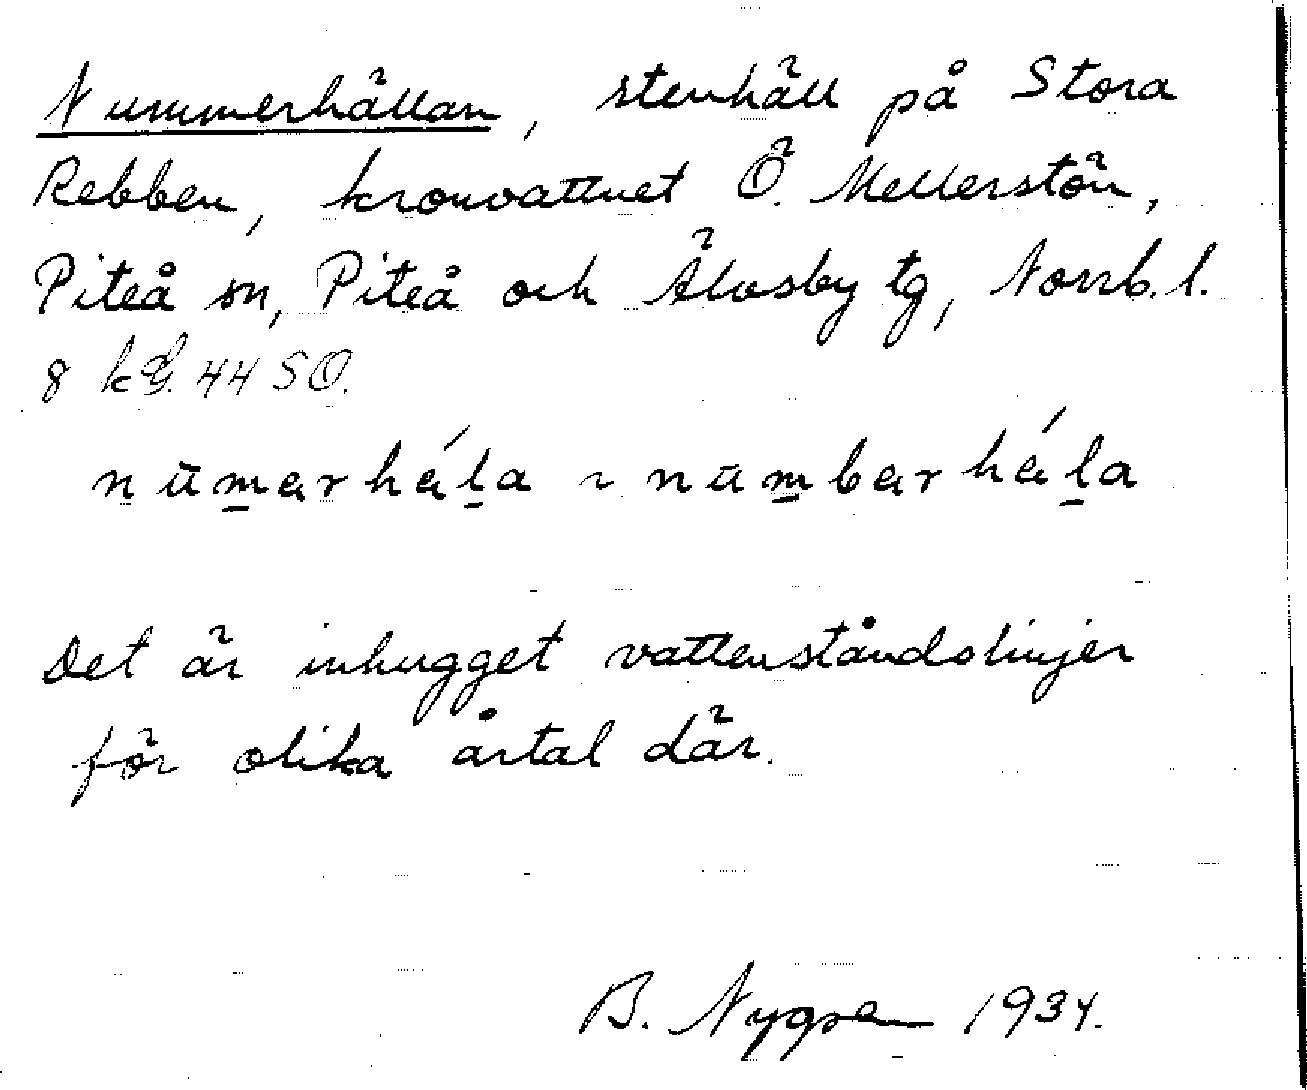 Nummerhällan, stenhäll på Stora
Rebben, kronvattnet Ö. Mellerstön,
Piteå sn, Piteå och Älvsby tg, Norrb. l.
8 44 SO.
nūmarhála ~ nūmbarhála
Det är inhugget vattenståndslinjer
för olika årtal där.
B. Nygren 1934.